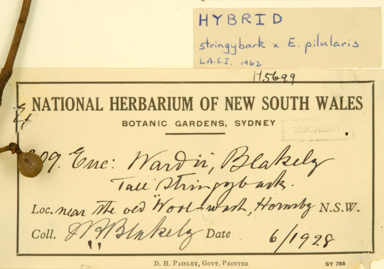 HYBRID
stringybark x E. pilularis
L.A.S.J. 1962
H5699
NATIONAL HERBARIUM OF NEW SOUTH WALES
BOTANIC GARDENS, SYDNEY
Euc: Wardii, Blakely
Tall Stringybark.
Loc. near the old Wool-wash, Hornsby N.S.W.
Coll. Blakely Date 6/1928
D. H. PAISLEY, GOVT. PRINTER ST 788